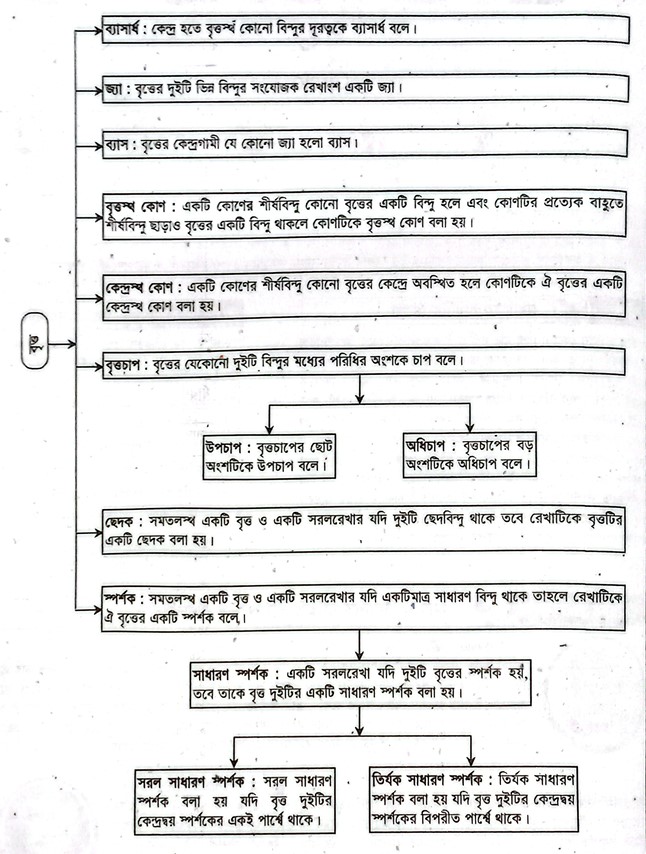 ব্যাসার্ধ : কেন্দ্র হতে বৃত্তস্থ কোনো বিন্দুর দূরত্বকে ব্যাসার্ধ বলে।
জ্যা : বৃত্তের দুইটি ভিন্ন বিন্দুর সংযোজক রেখাংশ একটি জ্যা।
ব্যাস : বৃত্তের কেন্দ্রগামী যে কোনো জ্যা হলো ব্যাস।
বৃত্তস্থ কোণ : একটি কোণের শীর্ষবিন্দু কোনো বৃত্তের একটি বিন্দু হলে এবং কোণটির প্রত্যেক বাহুতে
শীর্ষবিন্দু ছাড়াও বৃত্তের একটি বিন্দু থাকলে কোণটিকে বৃত্তস্থ কোণ বলা হয়।
কেন্দ্রস্থ কোণ : একটি কোণের শীর্ষবিন্দু কোনো বৃত্তের কেন্দ্রে অবস্থিত হলে কোণটিকে ঐ বৃত্তের একটি
কেন্দ্রস্থ কোণ বলা হয়।
বৃত্ত
বৃত্তচাপ : বৃত্তের যেকোনো দুইটি বিন্দুর মধ্যের পরিধির অংশকে চাপ বলে।
উপচাপ : বৃত্তচাপের ছোট
অংশটিকে উপচাপ বলে।
অধিচাপ : বৃত্তচাপের বড়
অংশটিকে অধিচাপ বলে।
ছেদক : সমতলস্থ একটি বৃত্ত ও একটি সরলরেখার যদি দুইটি ছেদবিন্দু থাকে তবে রেখাটিকে বৃত্তটির
একটি ছেদক বলা হয়।
স্পর্শক : সমতলস্থ একটি বৃত্ত ও একটি সরলরেখার যদি একটিমাত্র সাধারণ বিন্দু থাকে তাহলে রেখাটিকে
ঐ বৃত্তের একটি স্পর্শক বলে।
সাধারণ স্পর্শক : একটি সরলরেখা যদি দুইটি বৃত্তের স্পর্শক হয়,
তবে তাকে বৃত্ত দুইটির একটি সাধারণ স্পর্শক বলা হয়।
সরল সাধারণ স্পর্শক : সরল সাধারণ
স্পর্শক বলা হয় যদি বৃত্ত দুইটির
কেন্দ্রদ্বয় স্পর্শকের একই পার্শ্বে থাকে।
তির্যক সাধারণ স্পর্শক : তির্যক সাধারণ
স্পর্শক বলা হয় যদি বৃত্ত দুইটির কেন্দ্রদ্বয়
স্পর্শকের বিপরীত পার্শ্বে থাকে।